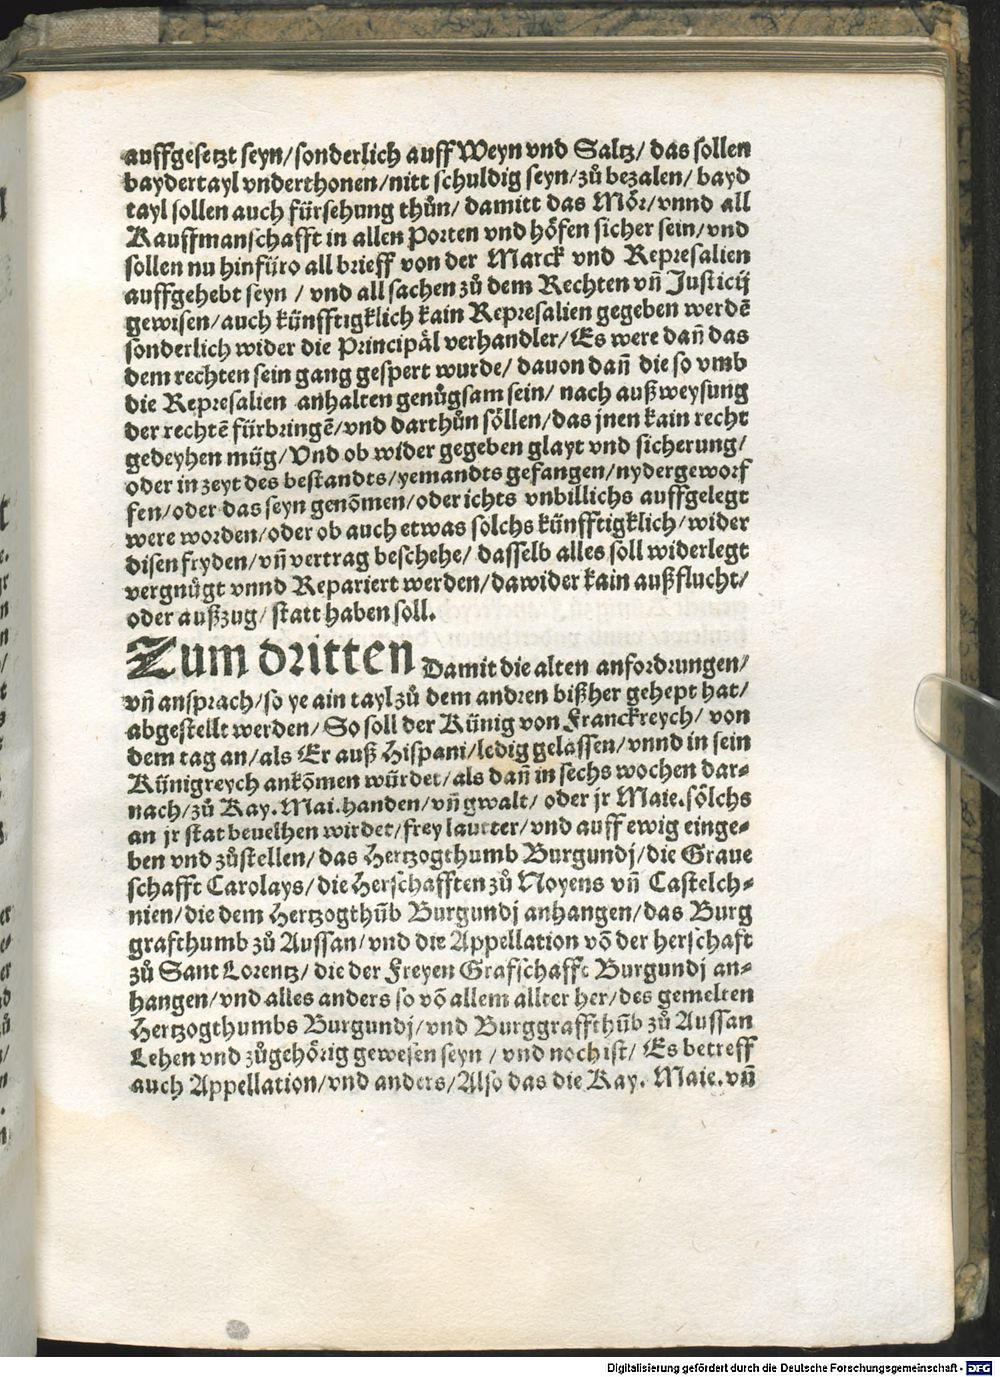 auffgesetzt seyn/sonderlich auff Weyn vnd Saltz/ das sollen
baydertayl vnderthonen/nitt schuldig seyn/zů bezalen/ bayd
tayl sollen auch fürsehung thůn/ damitt das Mör/vnnd all
Kauffmanschafft in allen Porten vnd höfen sicher sein/vnd
sollen nu hinfüro all brieff von der Marck vnd Represalien
auffgehebt seyn / vnd all sachen zů dem Rechten vñ Justicij
gewisen/auch künfftigklich kain Represalien gegeben werdē
sonderlich wider die Principäl verhandler/Es were dañ das
dem rechten sein gang gespert wurde/ dauon dañ die so vmb
die Represalien anhalten genůgsam sein/ nach außweysung
der rechtē fürbringē/vnd darthůn söllen/das jnen kain recht
gedeyhen müg/Vnd ob wider gegeben glayt vnd sicherung/
oder in zeyt des bestandts/yemandts gefangen/nydergeworf
fen/oder das seyn genōmen/oder ichts vnbillichs auffgelegt
were worden/oder ob auch etwas solchs künfftigklich/wider
disen fryden/vñ vertrag beschehe/ dasselb alles soll widerlegt
vergnůgt vnnd Repariert werden/dawider kain außflucht/
oder außzug/ statt haben soll.
Zum dritten Damit die alten anfordrungen/
vñ ansprach/so ye ain tayl zů dem andren bißher gehept hat/
abgestellt werden/ So soll der Künig von Franckreych/ von
dem tag an/als Er auß Hispani/ledig gelassen/vnnd in sein
Künigreych ankōmen würdet/als dañ in sechs wochen dar⸗
nach/zů Kay. Mai. handen/vñ gwalt/ oder jr Maie. sölchs
an jr stat beuelhen wirdet/frey lautter/vnd auff ewig einge⸗
ben vnd zůstellen/das Hertzogthumb Burgundj/die Graue
schafft Carolays/die Herschafften zů Noyens vñ Castelch⸗
nien/die dem Hertzogthūb Burgundj anhangen/das Burg
grafthumb zů Aussan/vnd die Appellation vō der herschaft
zů Sant Lorentz/die der Freyen Grafschafft Burgundj an⸗
hangen/vnd alles anders so vō allem allter her/des gemelten
Hertzogthumbs Burgundj/vnd Burggraffthūb zů Aussan
Lehen vnd zůgehörig gewesen seyn / vnd noch ist/ Es betreff
auch Appellation/vnd anders/Also das die Kay. Maie. vñ
Digitalisierung gefördert durch die Deutsche Forschungsgemeinschaft - DFG